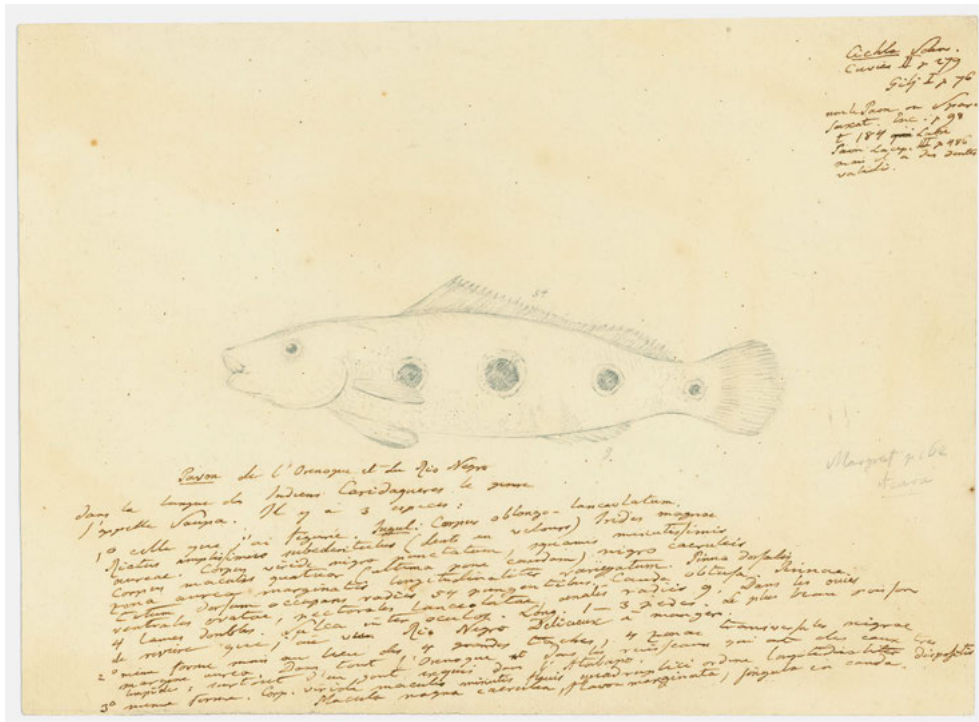 Cichla Schn.
Cuvier II p 279
Gilj I p 76
non le Paon ou Spar
Saxat. Enc. p 98
t 184 Labre
Paon Lacep. III p 486
mais il a des dents
validi.
54
9.
Margraf p 162
Acara
Pavon de l'Orenoque et du Rio Negro
dans la langue des Indiens Caridaqueres le genre
l'appelle Saupa. Il y a 3 especes:
1º celle que j'ai figurée. Corpus oblongo-lanceolatum.
Rictus amplissimus subedentulus (dents en velours) Irides magnae
aureae. Corpus viride nigro punctatum, squamis minutissimis
Corpus maculis quatuor (ultima pone caudam) nigro caeruleis
zona aurea marginatis longitudinaliter variegatum. Pinna dorsalis
totum dorsum occupans radiis 54 pungentibus. Cauda obtusa. Pinnae
ventrales ovatae, pectorales lanceolatae, anales radiis 9. Dans les ouies
4 lames doubles. Sulca inter oculos. Long. 1–3 pedes. Le plus beau poisson
de riviere que j'aie vu. Rio Negro Délicieux a manger.
2º même forme mais au lieu des 4 grandes taches, 4 zonae transversales nigrae
margine aureo. Dans tout l'Orenoque et dans les ruisseaux qui ont des eaux tres
limpides: surtout d'un gout exquis dans l'Atabapo.
3º meme forma. Corp. viridia maculis minutis fuscis quadruplici ordine longitudinaliter dispositis
Macula magna caerulea, flavo marginata, singula in cauda.